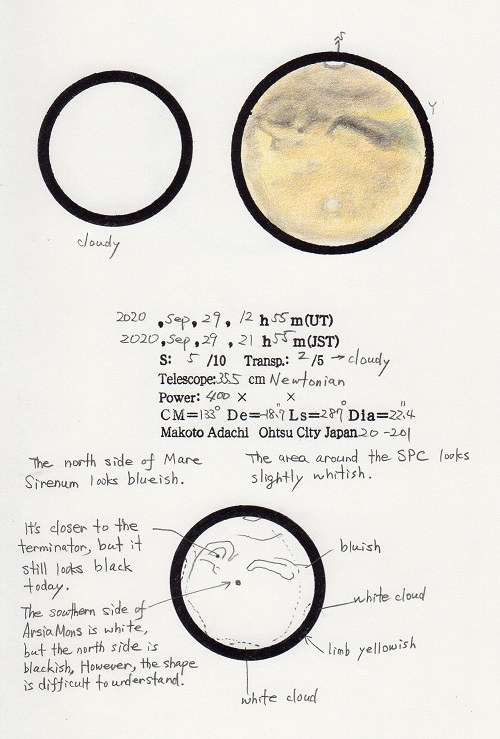 S
Y
cloudy
2020, Sep, 29, 12 h 55 m(UT)
2020, Sep, 29, 21 h 55 m(JST)
S: 5 /10 Transp.: 2 /5 → cloudy
Telescope: 35.5 cm Newtonian
Power: 400 × ×
CM=133° De=-18.7 Ls=287° Dia=22.4"
Makoto Adachi Ohtsu City Japan 20-201
The north side of Mare
Sirenum looks blueish.
The area around the SPC looks
slightly whitish.
It's closer to the
terminator, but it
still looks black
today.
The southern side of
Arsia Mons is white,
but the north side is
blackish, However, the shape
is difficult to understand.
bluish
white cloud
limb yellowish
white cloud